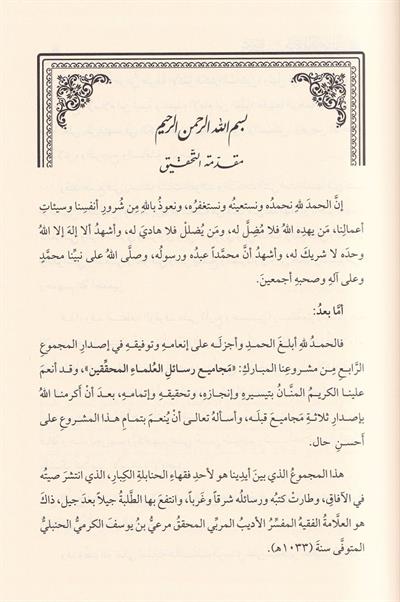 بسم الله الرحمن الرحيم
مقدمة التحقيق
إنَّ الحمدَ للهِ نحمدُه ونستعينُه ونستغفرُه، ونعوذُ باللهِ مِن شُرورِ أنفسِنا وسيئاتِ
أعمالِنا، مَن يهدِه اللهُ فلا مُضِلَّ له، ومَن يُضلل فلا هاديَ له، وأشهدُ ألا إلهَ إلا اللهُ
وحدَه لا شريكَ له، وأشهدُ أنَّ محمَّداً عبدُه ورسولُه، وصلَّى اللهُ على نبيِّنا محمَّدٍ
وعلى آلِه وصحبِه أجمعينَ.
أمَّا بعدُ:
فالحمدُ للهِ أبلغَ الحمدِ وأجزلَه على إنعامِه وتوفيقِه في إصدارِ المجموعِ
الرَّابعِ مِن مشروعِنا المباركِ: «مَجاميع رسائلِ العُلماءِ المحقِّقين»، وقد أنعمَ
علينا الكريمُ المنَّانُ بتيسيرِه وإنجازِه، وتحقيقِه وإتمامِه، بعدَ أنْ أكرمَنا اللهُ
بإصدارِ ثلاثةِ مَجاميعَ قبلَه، وأسألُه تعالى أنْ يُنعمَ بتمامِ هذا المشروعِ على
أحسنِ حال.
هذا المجموعُ الذي بينَ أيدِينا هو لأحدِ فقهاءِ الحنابلةِ الكِبارِ، الذي انتشرَ صيتُه
في الآفاقِ، وطارتْ كتبُه ورسائلُه شرقاً وغَرباً، وانتفعَ بها الطَّلبةُ جيلاً بعدَ جيل، ذاكَ
هو العلَّامةُ الفقيهُ المفسِّرُ الأديبُ المربِّي المحققُ مرعيُّ بنُ يوسفَ الكرميُّ الحنبليُّ
المتوفَّى سنةَ (١٠٣٣هـ).